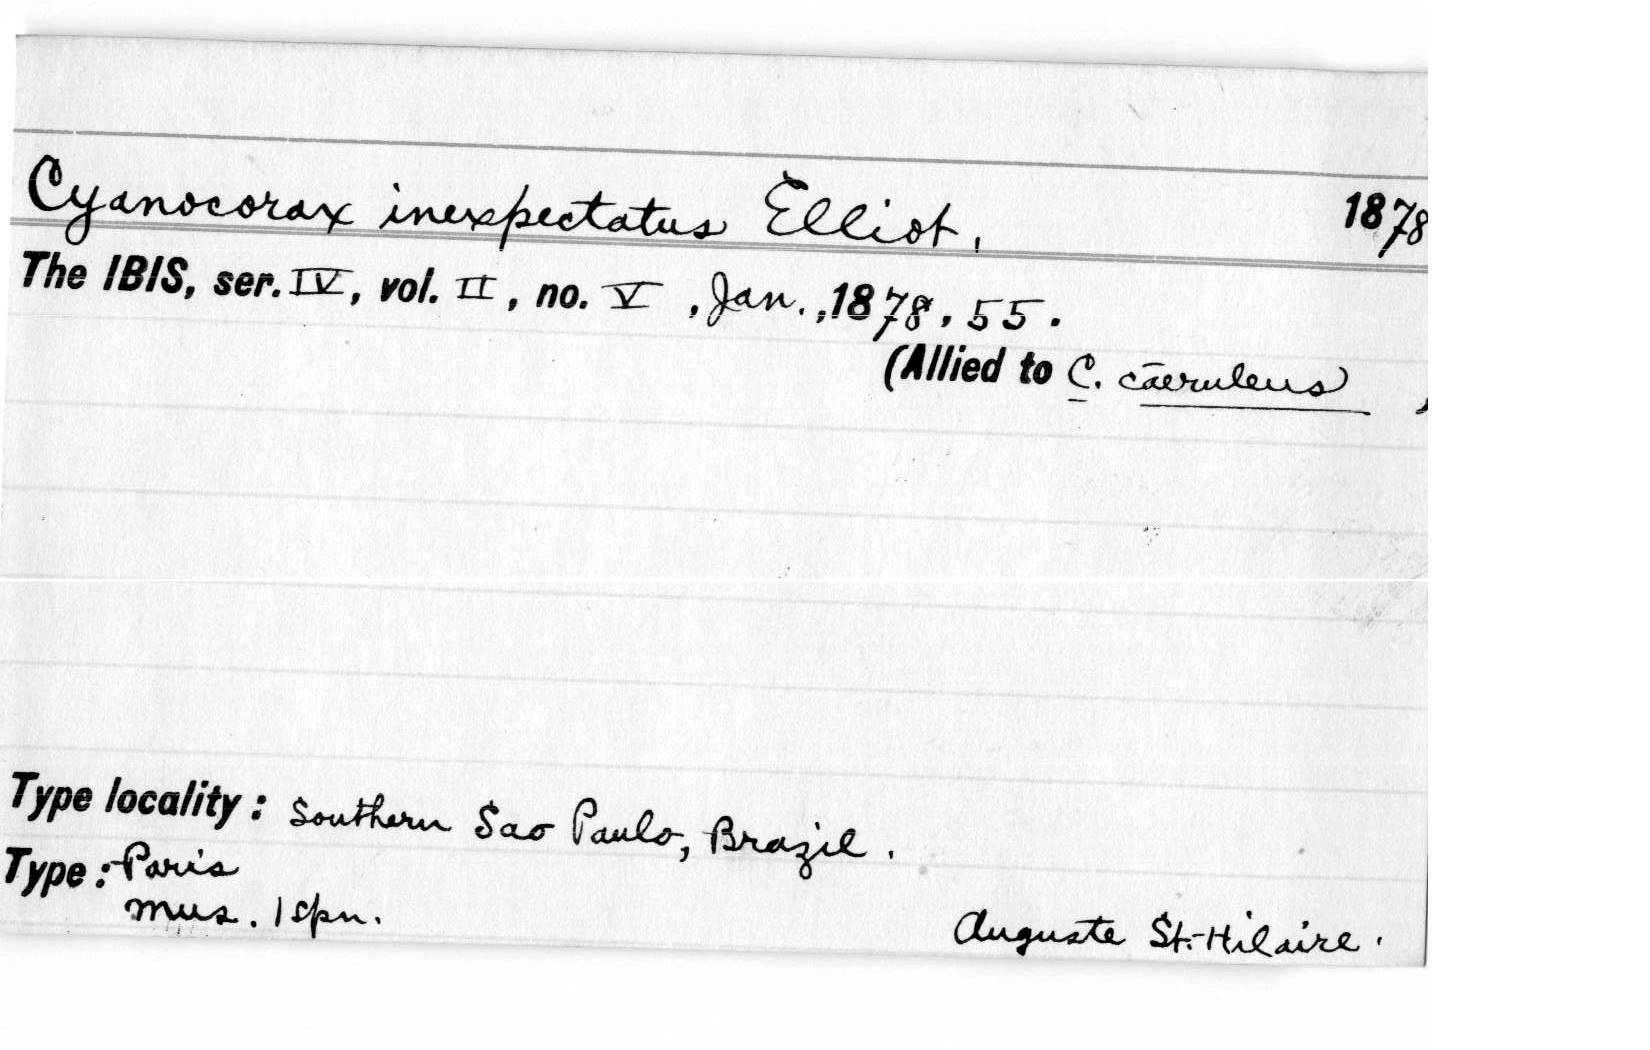 Cyanocorax inexpectatus Elliot, 1878
The IBIS, ser. IV, vol. II, no. V, Jan., 1878, 55.
(Allied to C. cāeruleus )
Type locality: Southern Sao Paulo, Brazil.
Type: Paris
mus. 1 spn. Auguste St.-Hilaire.